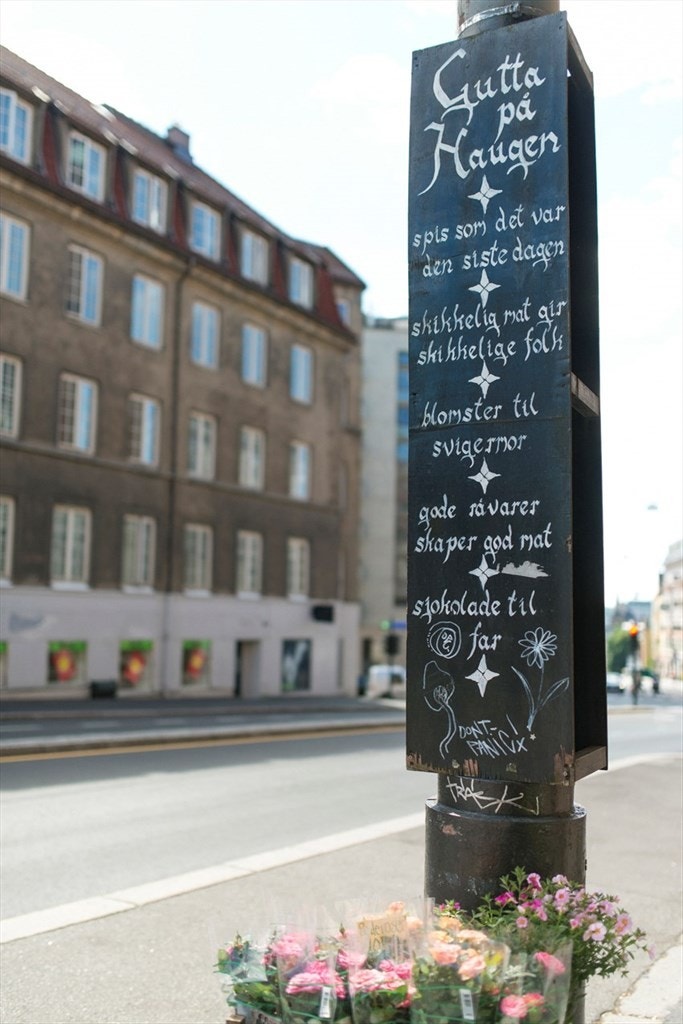 Gutta
på
Haugen
spis som det var
den siste dagen
skikkelig mat gir
skikkelige folk
blomster til
svigermor
gode råvarer
skaper god mat
sjokolade til
far
DONT-
PANIC!